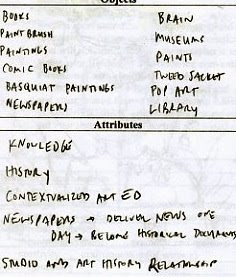 Objects
BOOKS
PAINT BRUSH
PAINTINGS
COMIC BOOKS
BASQUIAT PAINTINGS
NEWSPAPERS
BRAIN
MUSEUMS
PAINTS
TWEED JACKET
POP ART
LIBRARY
Attributes
KNOWLEDGE
HISTORY
CONTEXTUALIZED ART ED
NEWSPAPERS → DELIVER NEWS ONE
DAY → BECOME HISTORICAL DOCUMENTS
STUDIO AND ART HISTORY RELATIONSHIP